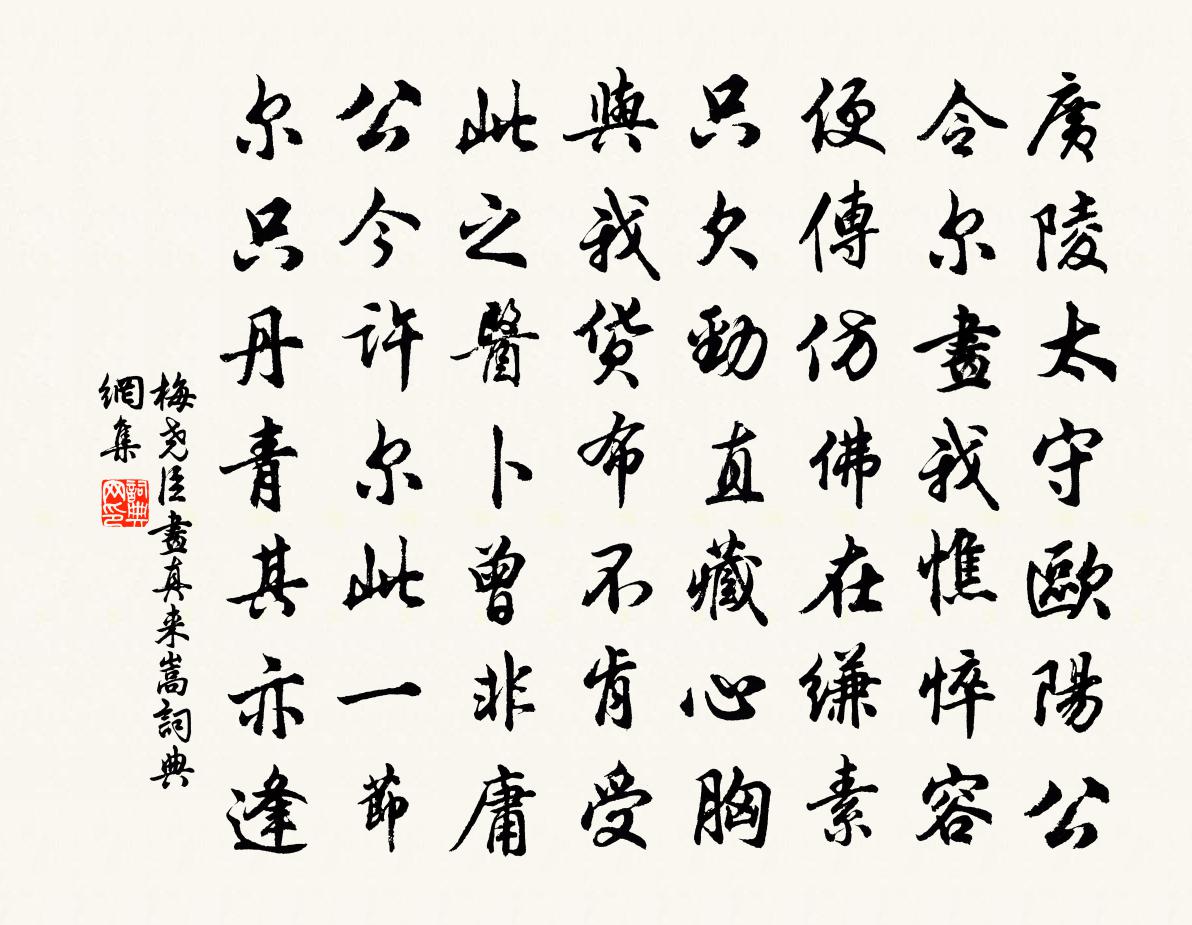 廣陵太守歐陽公
令尔畫我憔悴容
便傳仿佛在縑素
只欠勁直藏心胸
與我貨布不肯受
此之醫卜曾非庸
公今許尔此一節
尔只丹青其亦逢
梅尧臣畫真来嵩詞典
網集
詞典
网印